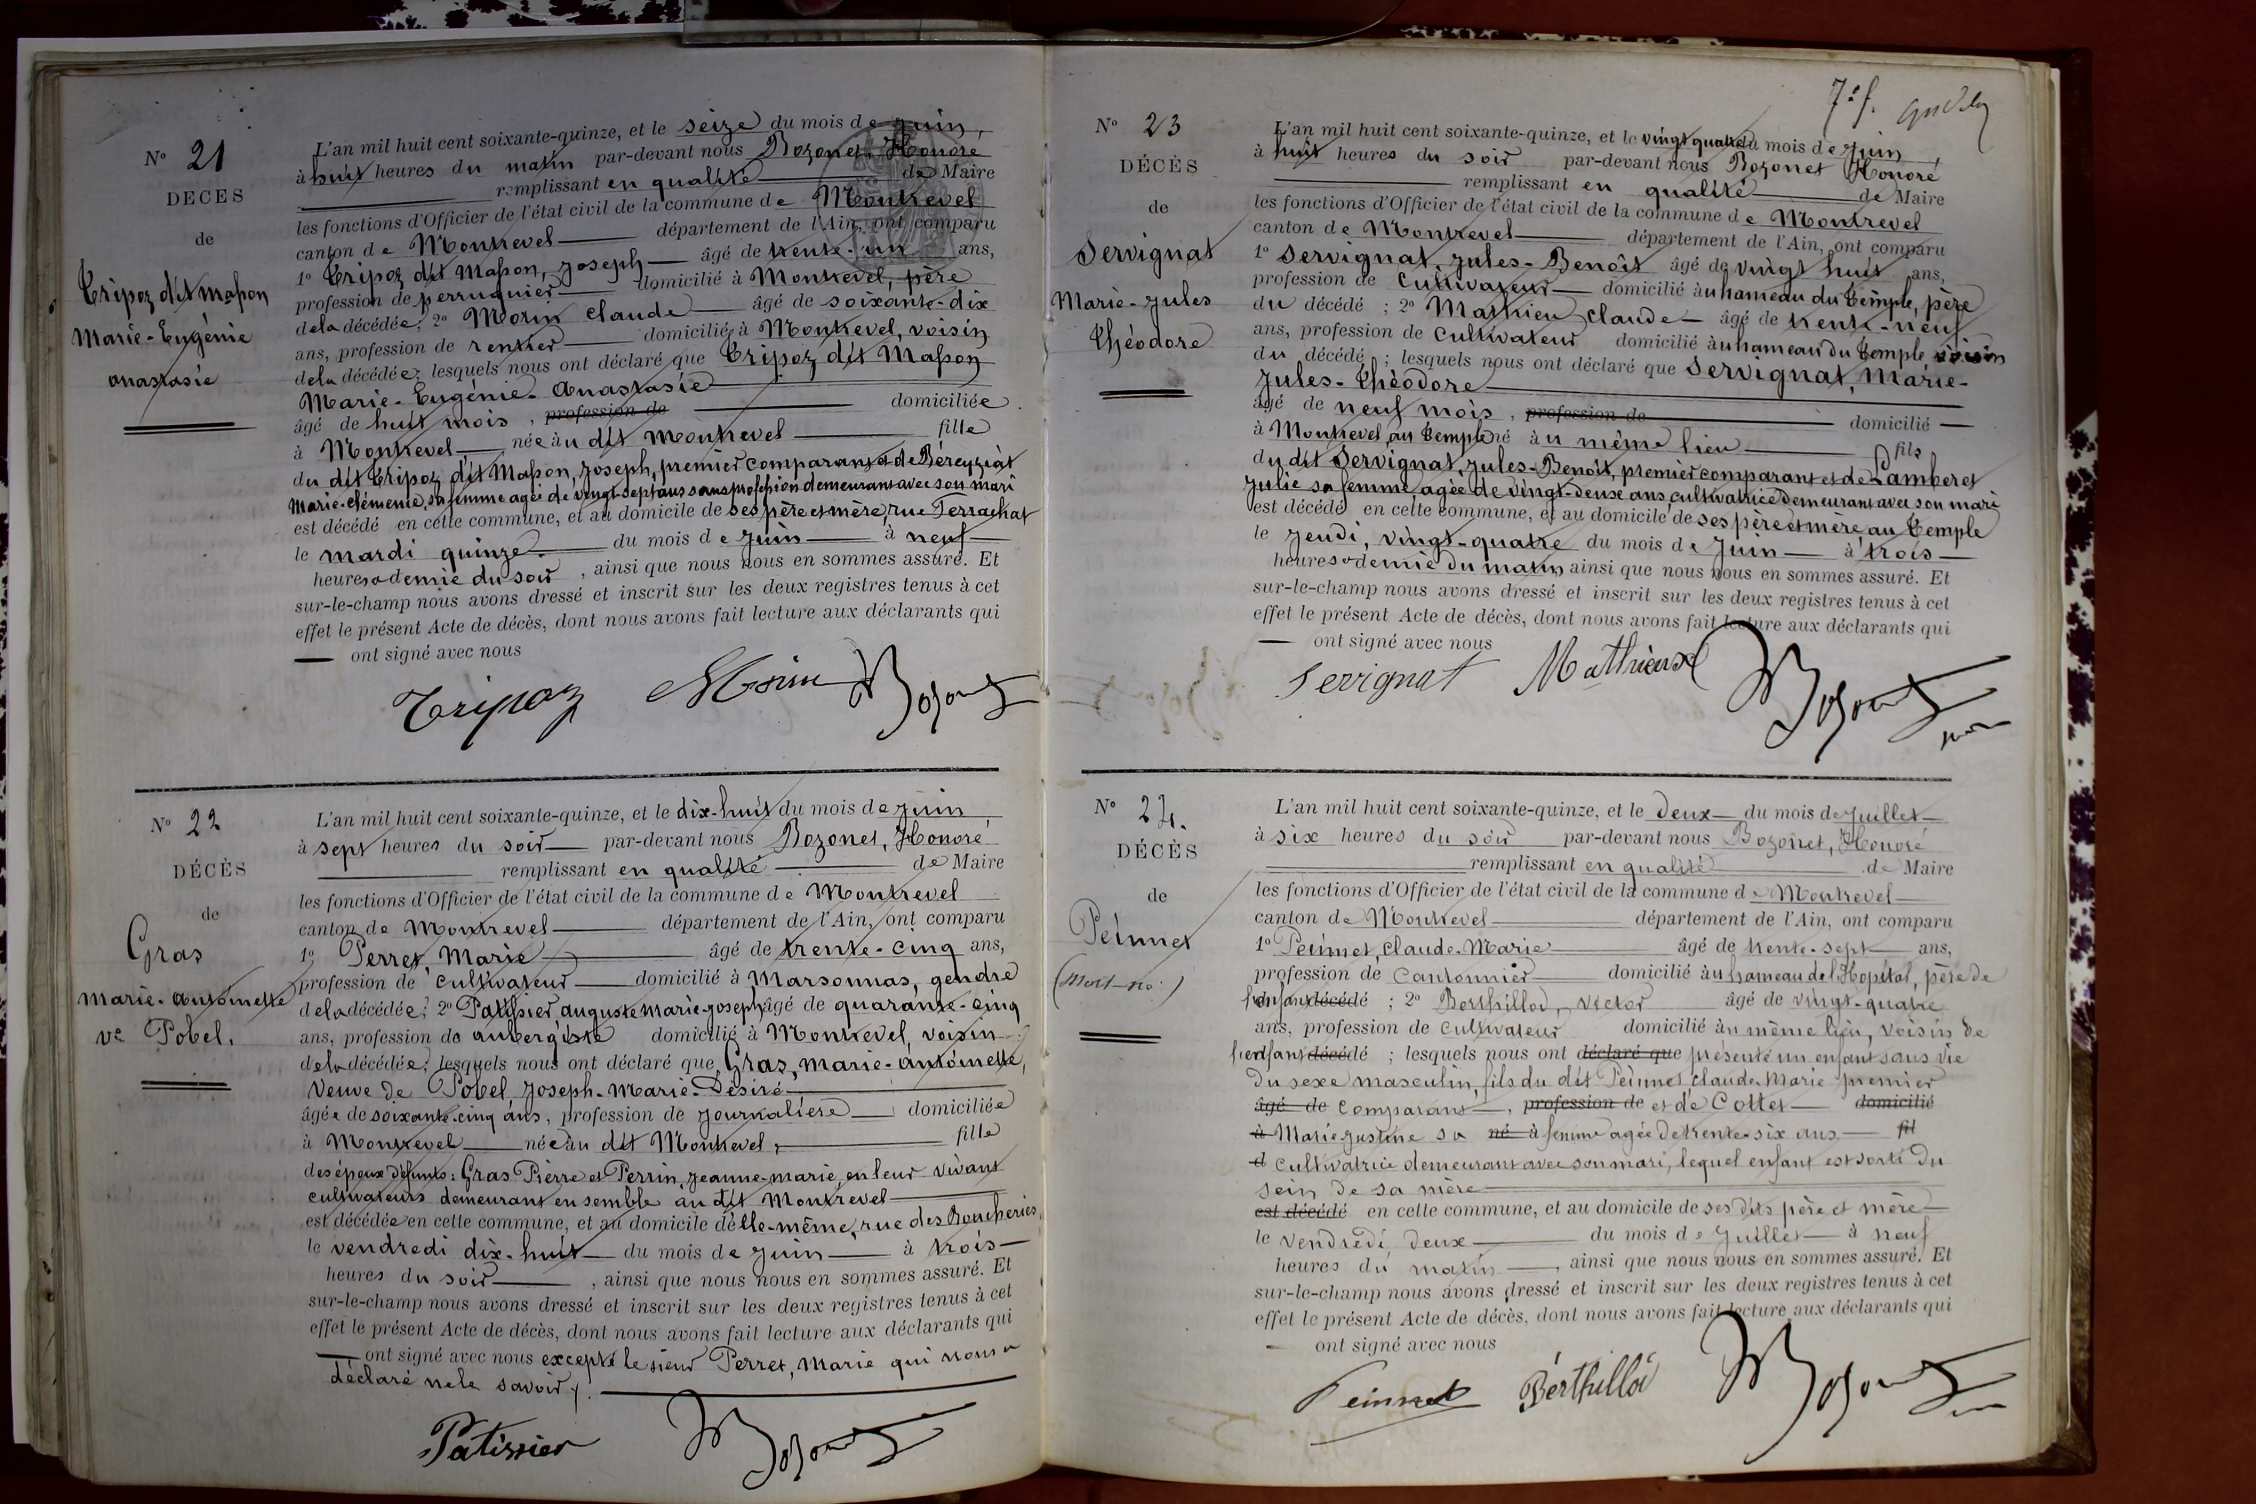 N° 21
DÉCÈS
de
Tripoz dit Masson
Marie-Eugénie
anastasie
L'an mil huit cent soixante-quinze, et le seize du mois de juin,
à huit heures du matin par-devant nous Bozonet, Honoré
remplissant en qualité de Maire
les fonctions d'Officier de l'état civil de la commune de Montrevel
canton de Montrevel département de l'Ain, ont comparu
1° Tripoz dit Masson, Joseph âgé de trente-un ans,
profession de perruquier domicilié à Montrevel, père
de la décédée; 2° Morin Claude âgé de soixante-dix
ans, profession de rentier domicilié à Montrevel, voisin
de la décédée; lesquels nous ont déclaré que Tripoz dit Masson
Marie-Eugénie-Anastasie
âgé de huit mois, profession de domiciliée
à Montrevel née àu dit Montrevel fille
du dit Tripoz dit Masson, Joseph, premier comparant et de Béreyziat
Marie-Clémence, sa femme agée de vingt-sept ans sans profession demeurant avec son mari
est décédé en cette commune, et au domicile de ses père et mère, rue Ferrachat
le mardi quinze du mois de juin à neuf
heures & demie du soir, ainsi que nous nous en sommes assuré. Et
sur-le-champ nous avons dressé et inscrit sur les deux registres tenus à cet
effet le présent Acte de décès, dont nous avons fait lecture aux déclarants qui
ont signé avec nous
Tripoz Morin Bozonet
N° 22
DÉCÈS
de
Gras
Marie-antoinette
ve Pobel.
L'an mil huit cent soixante-quinze, et le dix-huit du mois de juin
à sept heures du soir par-devant nous Bozonet, Honoré
remplissant en qualité de Maire
les fonctions d'Officier de l'état civil de la commune de Montrevel
canton de Montrevel département de l'Ain, ont comparu
1° Perret, Marie âgé de trente-cinq ans,
profession de cultivateur domicilié à Marsonnas, gendre
de la décédée; 2° Patissier auguste marie-joseph âgé de quarante-cinq
ans, profession de aubergiste domicilié à Montrevel, voisin
de la décédée; lesquels nous ont déclaré que Gras, marie-antoinette,
Veuve de Pobel Joseph-Marie-Désiré
âgée de soixante-cinq ans, profession de journalière domiciliée
à Montrevel née àu dit Montrevel, fille
des époux défunts: Gras Pierre et Perrin, Jeanne-marie, en leur vivant
cultivateurs demeurant ensemble au dit Montrevel
est décédée en cette commune, et au domicile d'elle-même, rue des Boucheries
le vendredi dix-huit du mois de juin à trois
heures du soir, ainsi que nous nous en sommes assuré. Et
sur-le-champ nous avons dressé et inscrit sur les deux registres tenus à cet
effet le présent Acte de décès, dont nous avons fait lecture aux déclarants qui
ont signé avec nous excepté le sieur Perret, Marie qui nous a
déclaré ne le savoir.
Patissier Bozonet
7e f.
N° 23
DÉCÈS
de
Servignat
Marie-Jules
Théodore
L'an mil huit cent soixante-quinze, et le vingt quatre du mois de juin,
à huit heures du soir par-devant nous Bozonet Honoré
remplissant en qualité de Maire
les fonctions d'Officier de l'état civil de la commune de Montrevel
canton de Montrevel département de l'Ain, ont comparu
1° Servignat, Jules-Benoît âgé de vingt huit ans,
profession de Cultivateur domicilié àu hameau du Temple, père
du décédé; 2° Mathieu Claude âgé de trente-neuf
ans, profession de Cultivateur domicilié àu hameau du Temple voisin
du décédé; lesquels nous ont déclaré que Servignat, Marie-
Jules-Théodore
âgé de neuf mois, profession de domicilié
à Montrevel au Temple né àu même lieu fils
du dit Servignat, Jules-Benoît, premier comparant et de Lamberet
Julie sa femme agée de vingt-deux ans, cultivatrice demeurant avec son mari
est décédé en cette commune, et au domicile de ses père et mère, au Temple
le jeudi, vingt-quatre du mois de juin à trois
heures & demie du matin ainsi que nous nous en sommes assuré. Et
sur-le-champ nous avons dressé et inscrit sur les deux registres tenus à cet
effet le présent Acte de décès, dont nous avons fait lecture aux déclarants qui
ont signé avec nous
Servignat Mathieux Bozonet
N° 24.
DÉCÈS
de
Peinnet
(Mort-né)
L'an mil huit cent soixante-quinze, et le deux du mois de juillet
à six heures du soir par-devant nous Bozonet, Honoré
remplissant en qualité de Maire
les fonctions d'Officier de l'état civil de la commune de Montrevel
canton de Montrevel département de l'Ain, ont comparu
1° Peinnet, Claude-Marie âgé de trente-sept ans,
profession de Cantonnier domicilié àu hameau de l'Hopital, père de
l'enfant décédé; 2° Berthillod, Victor âgé de vingt-quatre
ans, profession de cultivateur domicilié àu même lieu, voisin de
l'enfant décédé; lesquels nous ont déclaré que présenté un enfant sans vie
du sexe masculin, fils du dit Peinnet, Claude-Marie premier
âgé de comparant, profession de et de Cottet domicilié
à Marie-Justine sa né à femme agée de trente-six ans fil
d cultivatrice demeurant avec son mari, lequel enfant est sorti du
sein de sa mère
est décédé en cette commune, et au domicile de ses dits père et mère
le vendredi deux du mois de juillet à neuf
heures du matin, ainsi que nous nous en sommes assuré. Et
sur-le-champ nous avons dressé et inscrit sur les deux registres tenus à cet
effet le présent Acte de décès, dont nous avons fait lecture aux déclarants qui
ont signé avec nous
Peinnet Bérthillod Bozonet